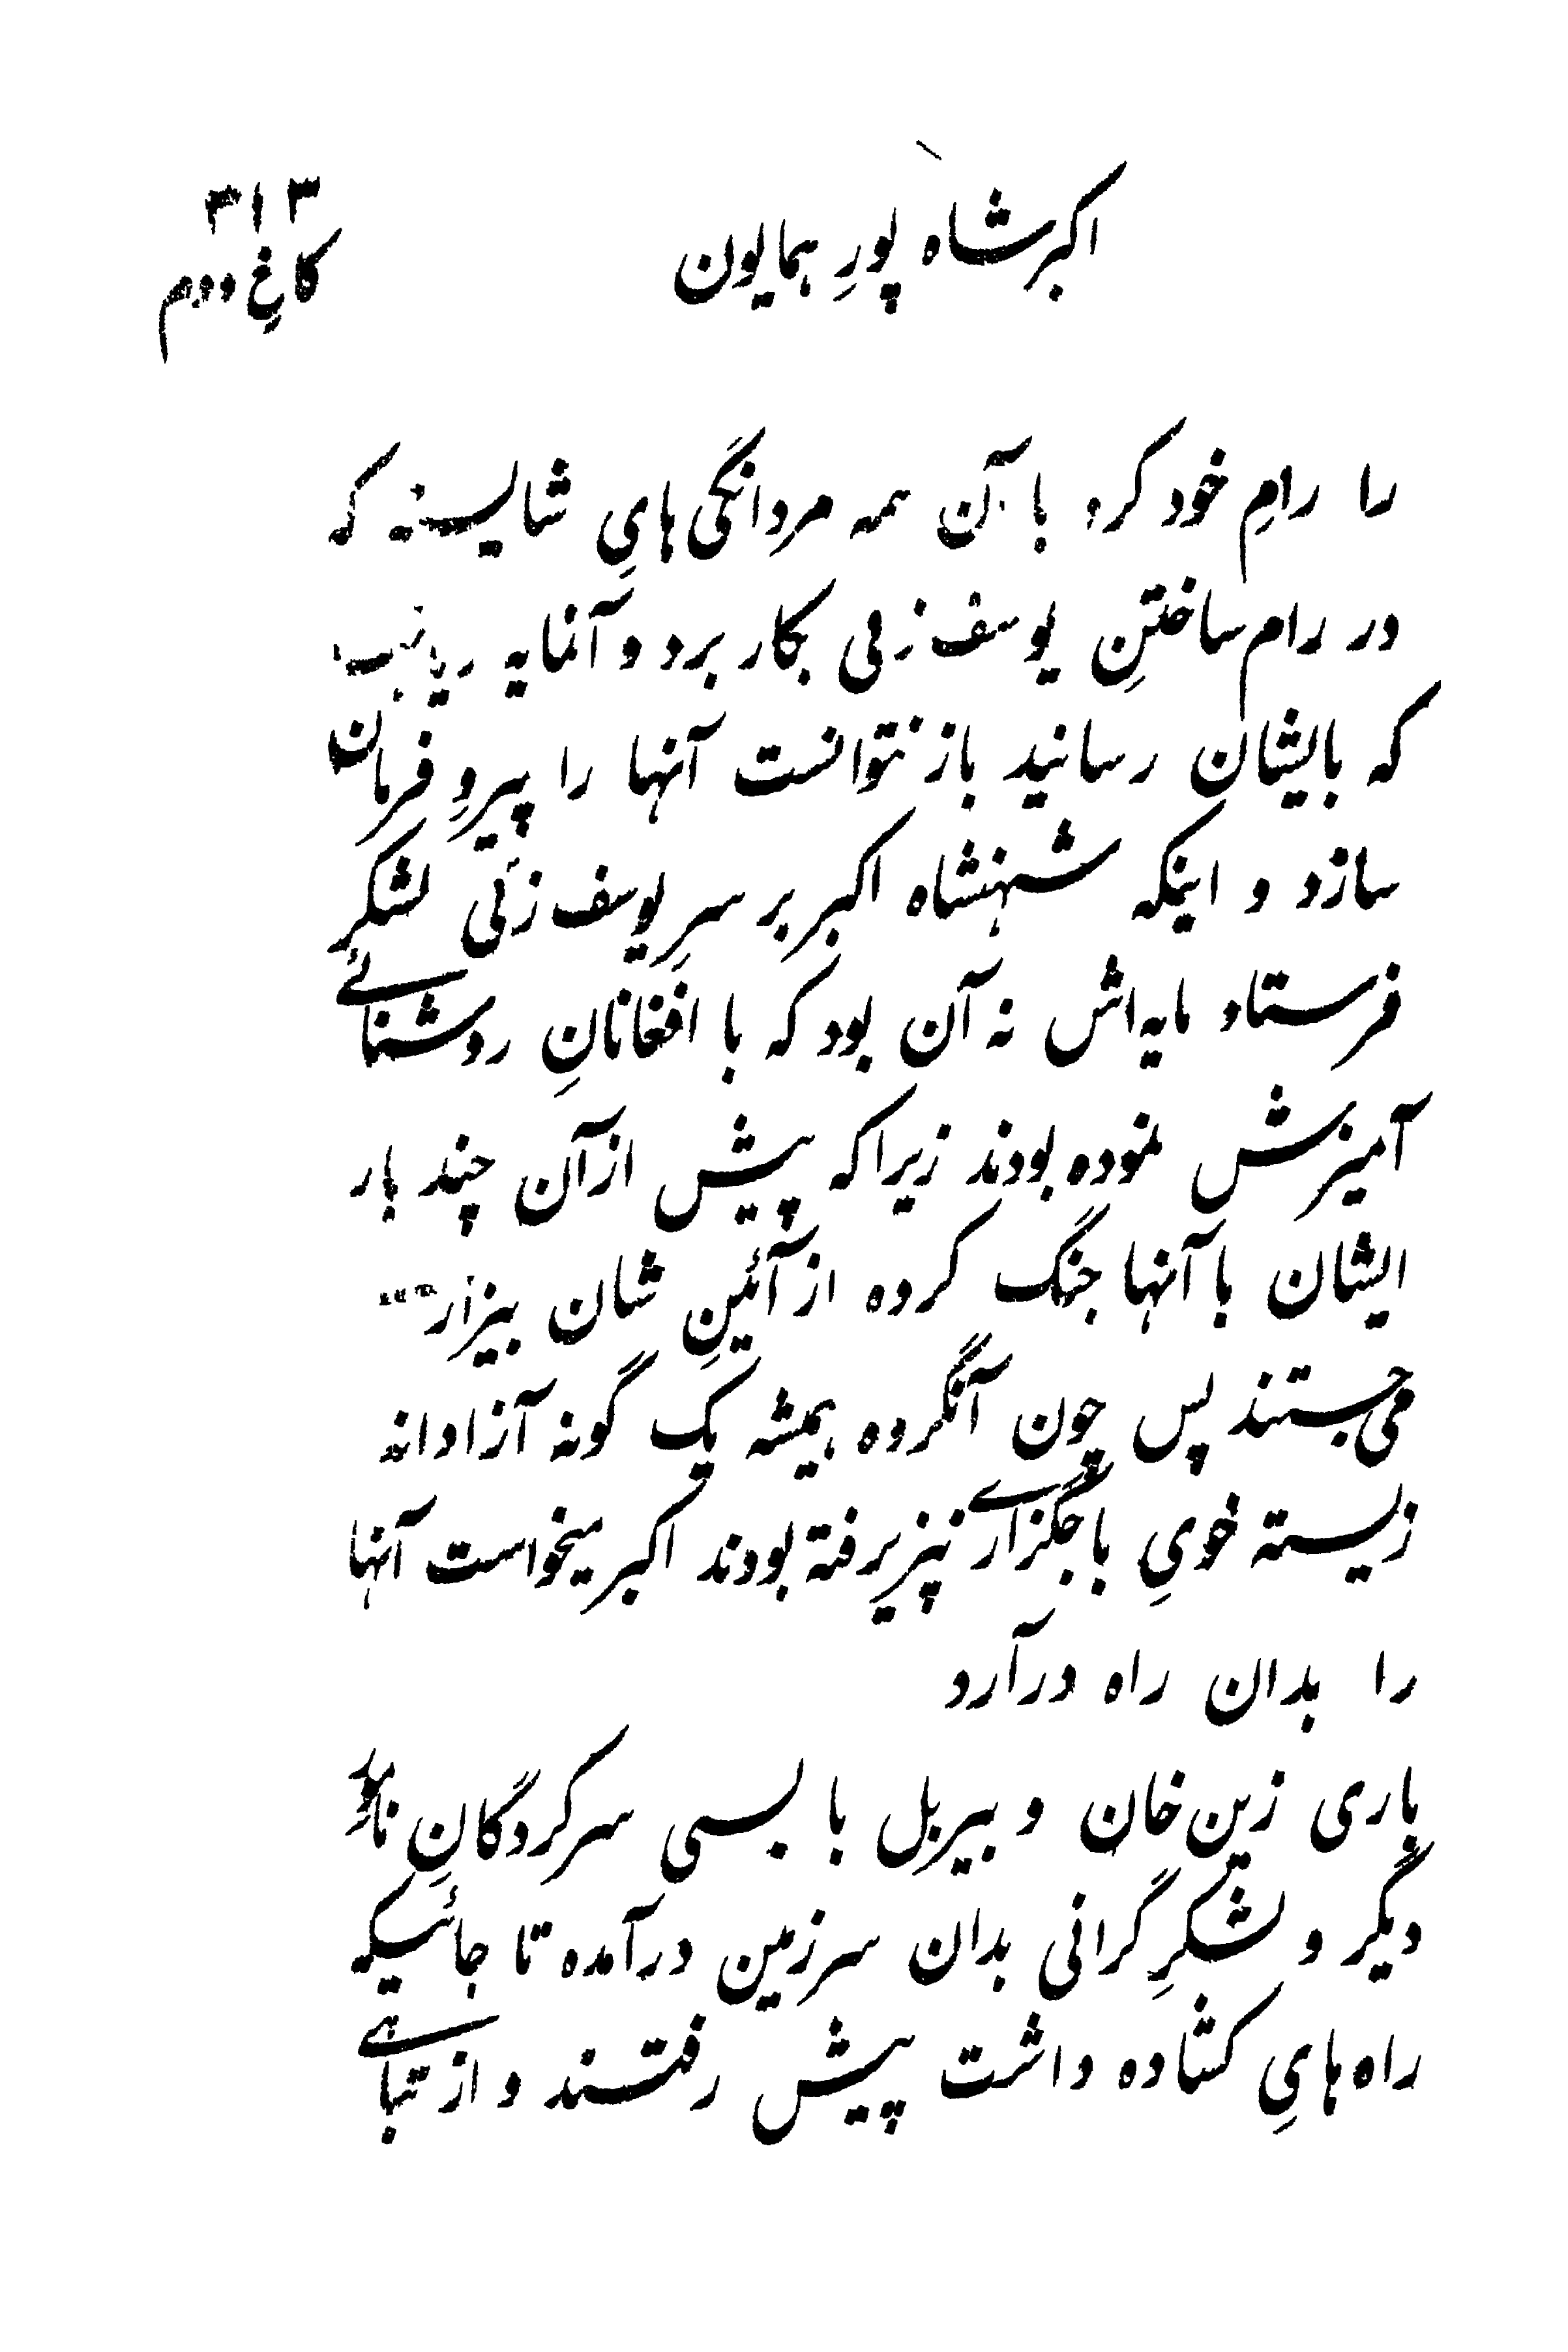 ۳۱۳
اکبر شاه پورِ همایون
کاخِ دوم
را رامِ خود کرد با آن همه مردانگی‌هایِ شایسته که
در رام ساختنِ یوسف زئی بکار برد و آنمایه
که بایشان رسانید باز نتوانست آنها را پیروِ فرمان
سازد و اینکه شهنشاه اکبر بر سرِ یوسف زئی لشکر
فرستاد مایه‌اش نه آن بود که با افغانانِ روشنائے
آمیزش نموده بودند زیرا که پیش از آن چند بار
ایشان با آنها جنگ کرده از آئینِ شان بیزار
می‌جستند پس چون آنگروه همیشه یک گونه آزادانه
زیسته خویِ باجگزارے نپزیرفته بودند اکبر میخواست آنها
را بدان راه درآرد
باری زین خان و بیربل با بسی سرکردگانِ نامور
دیگر و لشکرِ گرانی بدان سرزمین درآمده تا جائیکه
راه هایِ کشاده داشت پیش رفتند و از تباهے